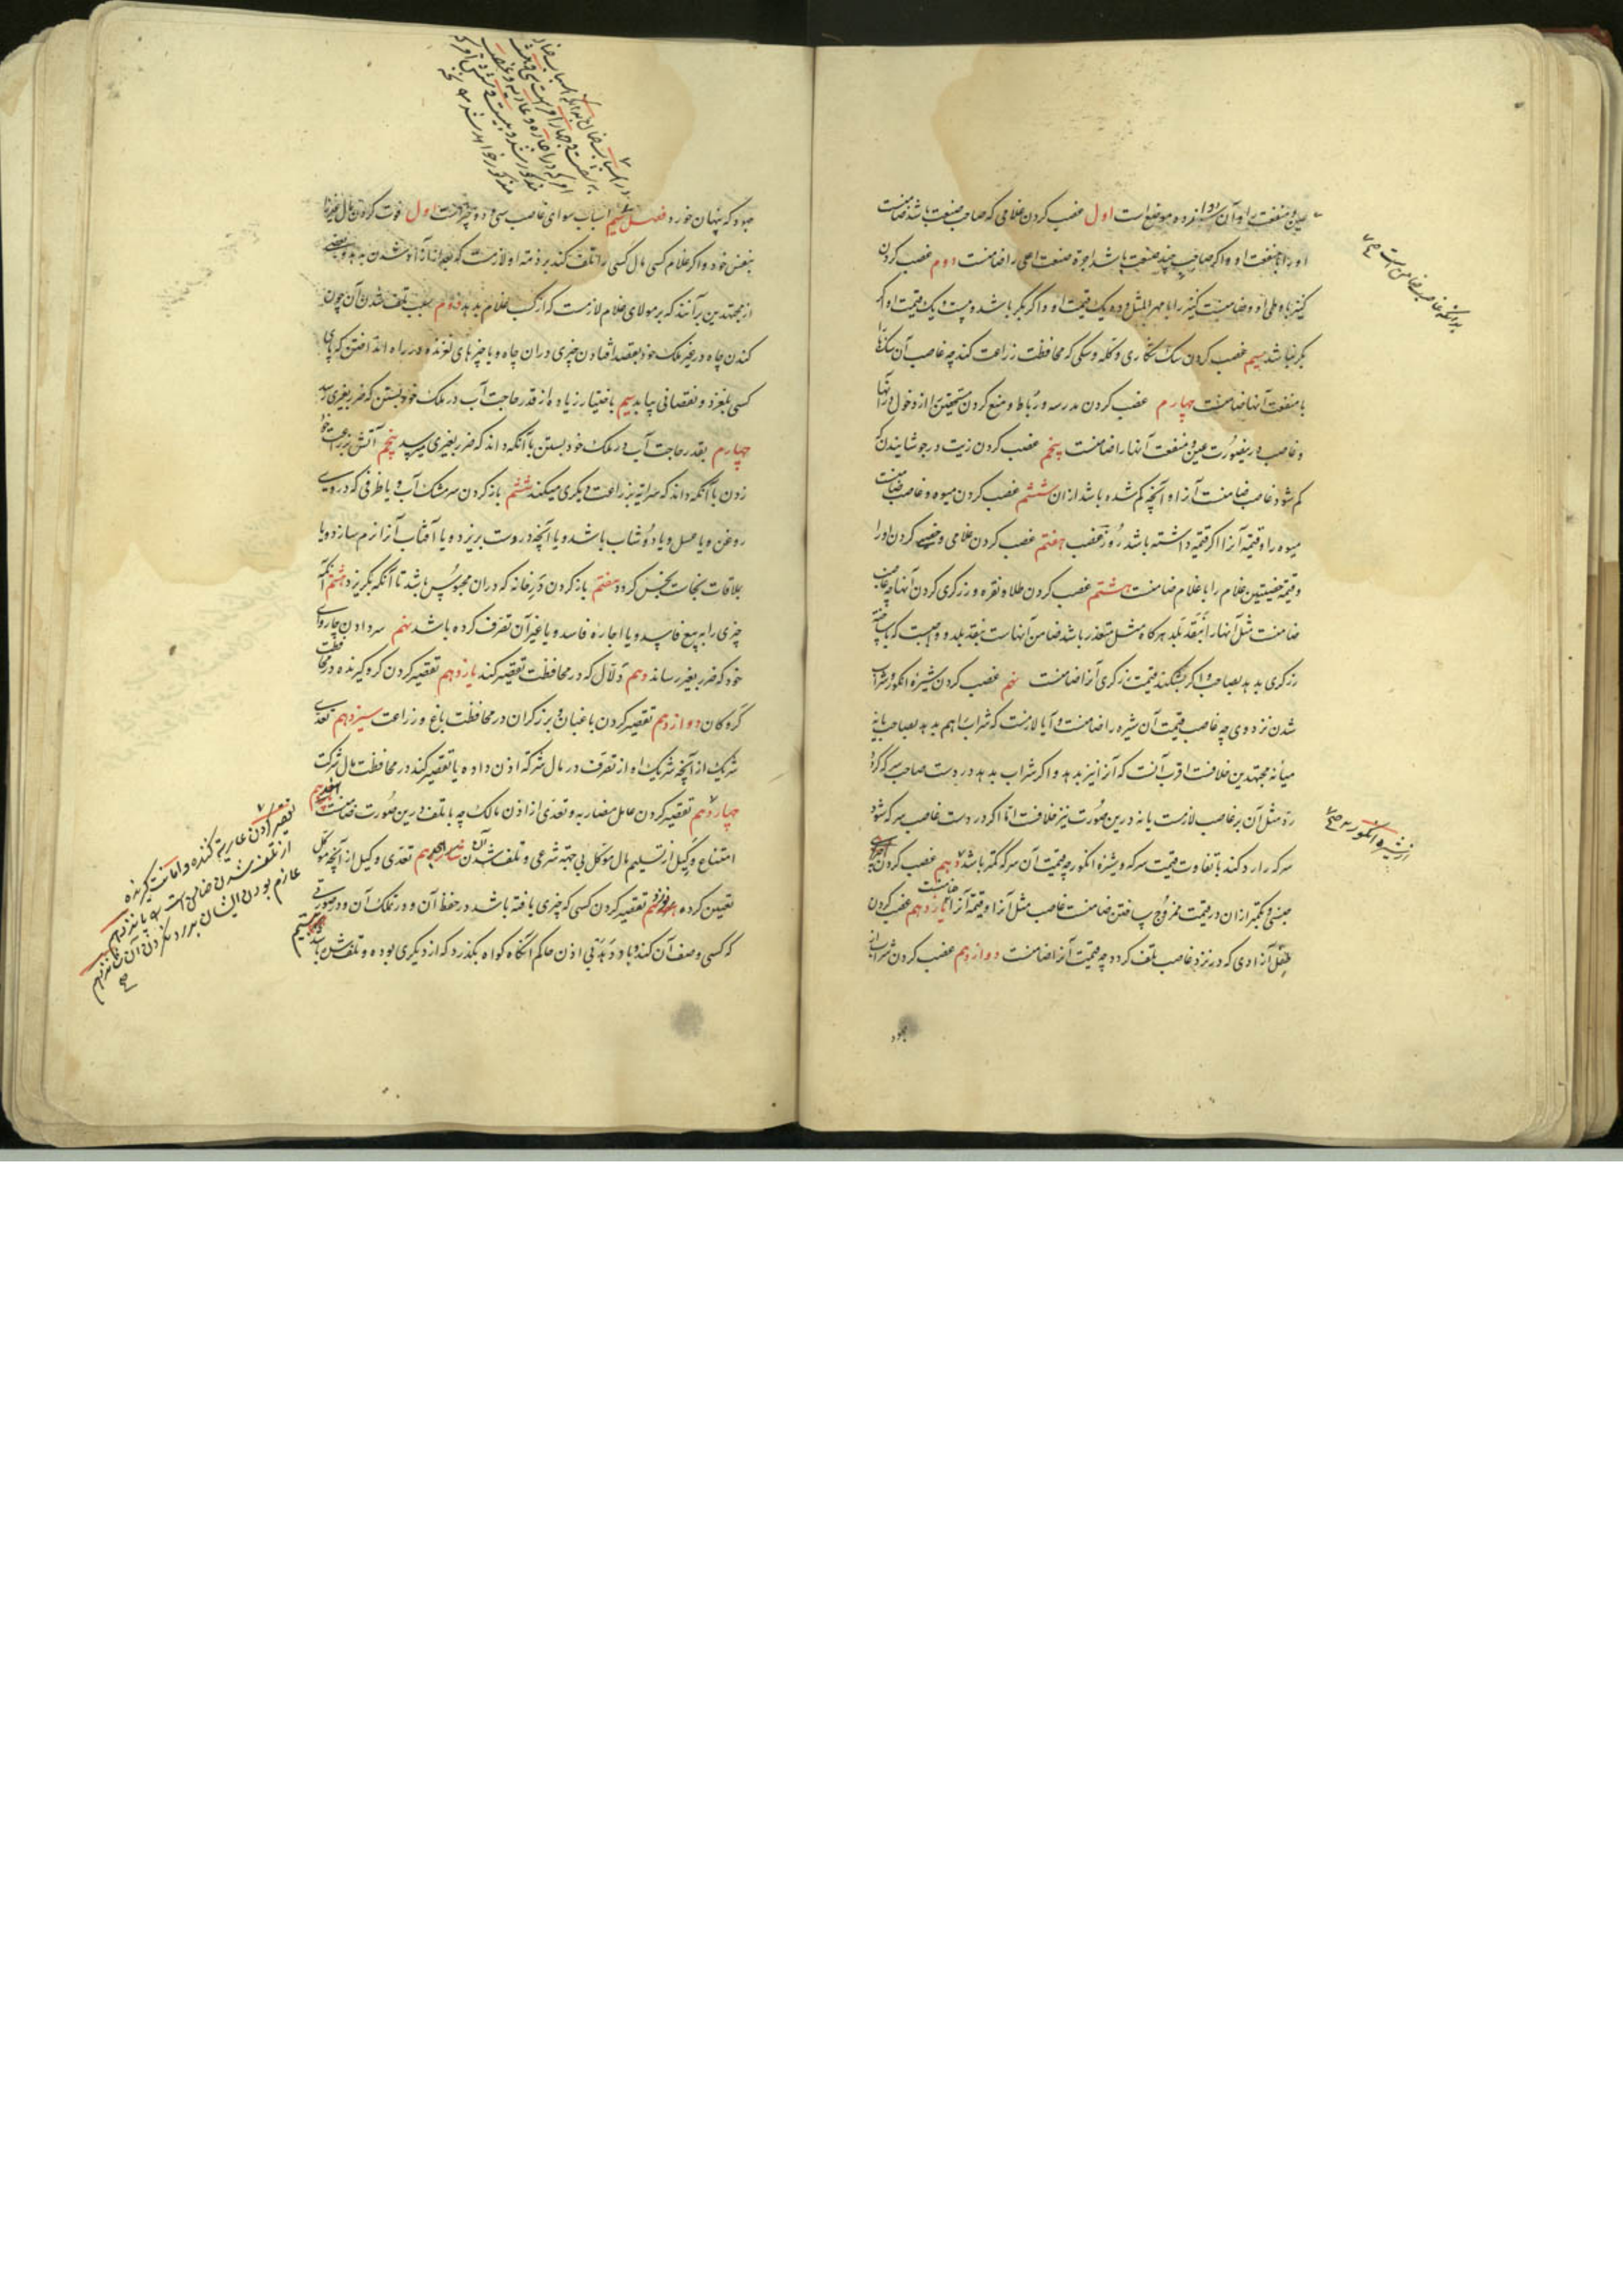 عین و منفعت را و آن دوازده موضع است اول غصب کردن غلامی که صاحب صنعت باشد ضامنست
او را با منفعت او و اگر صاحب چند صنعت باشد اجرة صنعت اعلی را ضامنست دوم غصب کردن
کنیز با وطی او و ضامنست کنیز را با مهر المثل و ده یک قیمت او و اگر بکر باشد و بیست یک قیمت او اگر
بکر نباشد سیم غصب کردن سک شکاری و کله و سکی که محافظت زراعت کند چه غاصب آن سکها
با منفعت آنها ضامنست چهارم غصب کردن مدرسه و رباط و منع کردن مستحقین از دخول در آنها
و غاصب درینصورت عین و منفعت آنها را ضامنست پنجم غصب کردن زیت و در جوشانیدن
کم شود غاصب ضامنست آنرا و آنچه کم شده باشد از ان ششم غصب کردن میوه و غاصب ضامنست
میوه را و قیمة آنرا اکر قیمة داشته باشد روز غصب هفتم غصب کردن غلامی و خصی کردن او را
و قیمة خصیتین غلام را با غلام ضامنست هشتم غصب کردن طلا و نقره و زرکری کردن آنها چه غاصب
ضامنست مثل آنها را بنقد بلد هرکاه مثل متعذر باشد ضامن آنهاست بنقد بلد و واجبست که ساخته
زرکری بدهد بصاحب و اکر بشکند قیمت زرکری آنرا ضامنست نهم غصب کردن شیره انکور و شراب
شدن نزد وی چه غاصب قیمت آن شیره را ضامنست و آیا لازمست که شراب را هم بدهد بصاحب یا نه
میانه مجتهدین خلافست اقرب آنست که آنرا نیز بدهد و اکر شراب بدهد در دست صاحب سرکه کردد
رد مثل آن بر غاصب لازمست یا نه درین صورت نیز خلافست اما اکر در دست غاصب سرکه شود
سرکه را رد کند با تفاوت قیمت سرکه و شیره انکور چه قیمت آن سرکه کمتر باشد دهم غصب کردن
جنسی و بکمتر از ان در قیمت ممزوج ساختن ضامنست غاصب مثل آنرا و قیمة آنرا یازدهم غصب کردن
طفل آزادی که در نزد غاصب تلف کردد چه قیمت آنرا ضامنست دوازدهم غصب کردن شراب از
جهود
از شیره انکور
جهود که پنهان خورد فصل سیم اسباب سوای غاصب سی و دو چیزست اول فوت کردن مال غیر را
بنفس خود و اکر غلام کسی مال کسی را تلف کند بر ذمه او لازمست که بعد از آزاد شدن بدهد و بعضی
از مجتهدین بر آنند که بر مولای غلام لازمست که از کسب غلام بدهد دوم سبب تلف شدن آن چون
کندن چاه در غیر ملک خود بقصد افتادن چیزی دران چاه و یا چیزهای لغزنده در راه انداختن که پای
کسی بلغزد و نقصانی بیابد سیم باختیار زیاده از قدر حاجت آب در ملک خود بستن که ضرر بغیری رسد
چهارم بقدر حاجت آب در ملک خود بستن با آنکه داند که ضرر بغیری میرسد پنجم آتش بزراعت خود
زدن با آنکه داند که سرایة بزراعت دیکری میکند ششم باز کردن سر مشک آب و یا ظرفی که در وی
روغن و یا عسل و یا دوشاب باشد و یا آنچه دروست بریزد و یا آفتاب آنرا نرم سازد و یا
بملاقات نجاست نجس کردد هفتم باز کردن در خانه که دران محبوس باشد تا آنکه بکریزد هشتم آنکه
چیزی را ببیع فاسد و یا اجاره فاسد و یا غیر آن تصرف کرده باشد نهم سر دادن چاروای
خود که ضرر بغیر رساند دهم دلال که در محافظت تقصیر کند یازدهم تقصیر کردن کرو کیرنده در محافظت
کروکان دوازدهم تقصیر کردن باغبان و برزکران در محافظت باغ و زراعت سیزدهم تعدی
شریک از آنچه شریک او از تصرف در مال شرکة اذن داده یا تقصیر کند در محافظت مال شرکت
چهاردهم تقصیر کردن عامل مضاربه و تعدی از اذن مالک چه با تلف درین صورت ضامنست
امتناع وکیل از تسلیم مال موکل بی جهة شرعی و تلف شدن آن تعدی وکیل از آنچه موکل
تعیین کرده تقصیر کردن کسی که چیزی یافته باشد در حفظ آن و در تملک آن و در صورتی
که کسی وصف آن کند و باو دهد بی اذن حاکم آنکاه کواه بکذرد که از دیکری بوده و تلف شده باشد
تقصیر کردن عاریة کننده و امانت کیرنده
از تلف شدن ضامن است پانزدهم
عازم بودن ایشان بر رد نکردن آن شانزدهم